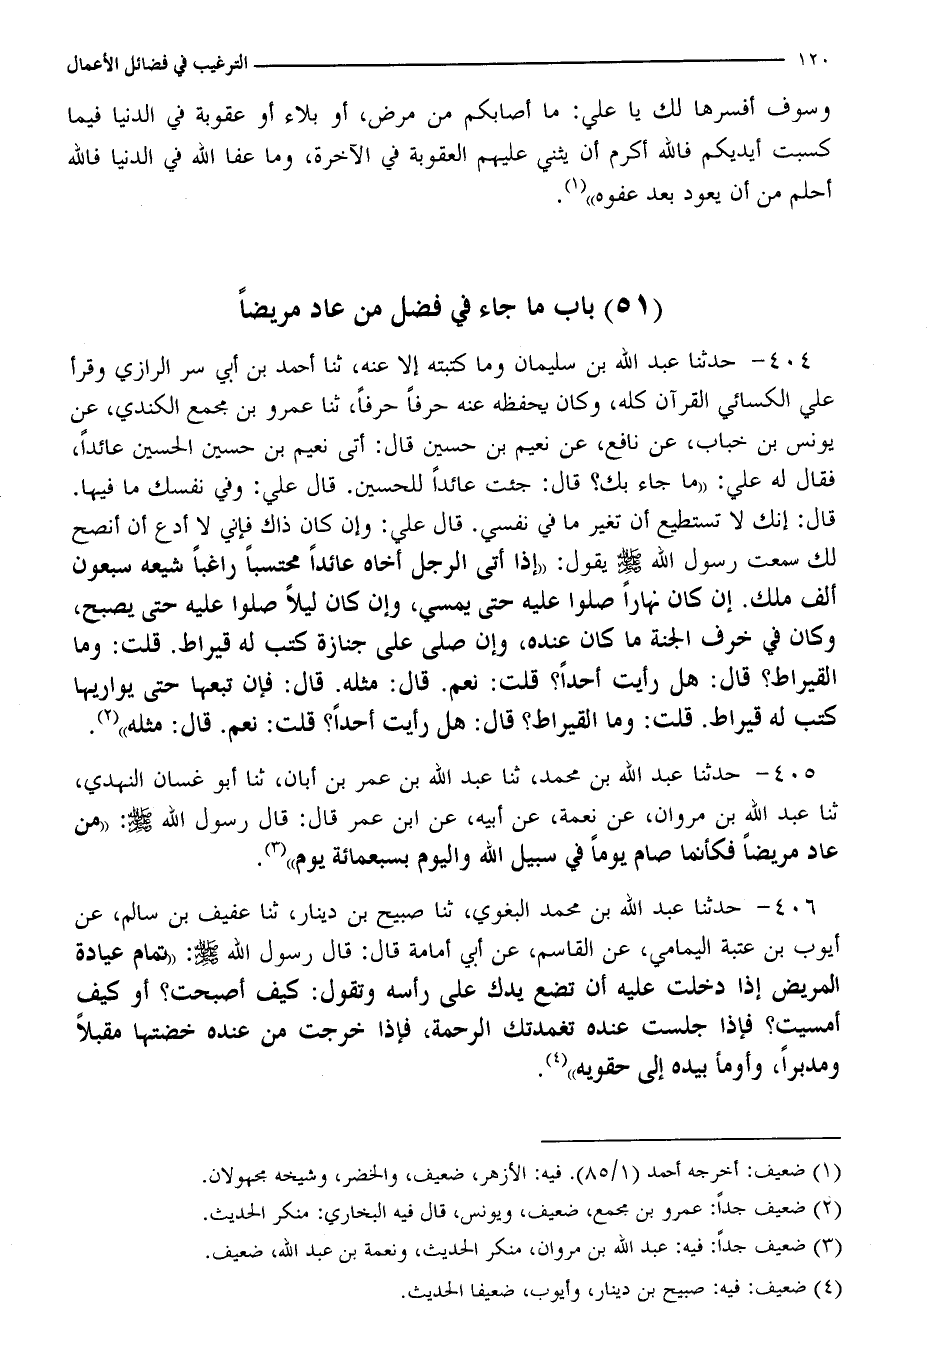 ١٢٠ الترغيب في فضائل الأعمال
وسوف أفسرها لك يا علي: ما أصابكم من مرض، أو بلاء أو عقوبة في الدنيا فيما
كسبت أيديكم فالله أكرم أن يثني عليهم العقوبة في الآخرة، وما عفا الله في الدنيا فالله
أحلم من أن يعود بعد عفوه»(١).
(٥١) باب ما جاء في فضل من عاد مريضاً
٤٠٤- حدثنا عبد الله بن سليمان وما كتبته إلا عنه، ثنا أحمد بن أبي سر الرازي وقرأ
علي الكسائي القرآن كله، وكان يحفظه عنه حرفاً حرفاً، ثنا عمرو بن مجمع الكندي، عن
يونس بن خباب، عن نافع، عن نعيم بن حسين قال: أتى نعيم بن حسين الحسين عائداً،
فقال له علي: «ما جاء بك؟ قال: جئت عائداً للحسين. قال علي: وفي نفسك ما فيها.
قال: إنك لا تستطيع أن تغير ما في نفسي. قال علي: وإن كان ذاك فإني لا أدع أن أنصح
لك سمعت رسول الله ﷺ يقول: «إذا أتى الرجل أخاه عائداً محتسباً راغباً شيعه سبعون
ألف ملك. إن كان نهاراً صلوا عليه حتى يمسي، وإن كان ليلاً صلوا عليه حتى يصبح،
وكان في خرف الجنة ما كان عنده، وإن صلى على جنازة كتب له قيراط. قلت: وما
القيراط؟ قال: هل رأيت أحداً؟ قلت: نعم. قال: مثله. قال: فإن تبعها حتى يواريها
كتب له قيراط. قلت: وما القيراط؟ قال: هل رأيت أحداً؟ قلت: نعم. قال: مثله»(٢).
٤٠٥- حدثنا عبد الله بن محمد، ثنا عبد الله بن عمر بن أبان، ثنا أبو غسان النهدي،
ثنا عبد الله بن مروان، عن نعمة، عن أبيه، عن ابن عمر قال: قال رسول الله ﷺ: «من
عاد مريضاً فكأنما صام يوماً في سبيل الله واليوم بسبعمائة يوم»(٣).
٤٠٦- حدثنا عبد الله بن محمد البغوي، ثنا صبيح بن دينار، ثنا عفيف بن سالم، عن
أيوب بن عتبة اليمامي، عن القاسم، عن أبي أمامة قال: قال رسول الله ﷺ: «تمام عيادة
المريض إذا دخلت عليه أن تضع يدك على رأسه وتقول: كيف أصبحت؟ أو كيف
أمسيت؟ فإذا جلست عنده تغمدتك الرحمة، فإذا خرجت من عنده خضتها مقبلاً
ومدبراً، وأومأ بيده إلى حقويه»(٤).
(١) ضعيف: أخرجه أحمد (٨٥/١). فيه: الأزهر، ضعيف، والخضر، وشيخه مجهولان.
(٢) ضعيف جداً: عمرو بن مجمع، ضعيف، ويونس، قال فيه البخاري: منكر الحديث.
(٣) ضعيف جداً: فيه: عبد الله بن مروان، منكر الحديث، ونعمة بن عبد الله، ضعيف.
(٤) ضعيف: فيه: صبيح بن دينار، وأيوب، ضعيفا الحديث.